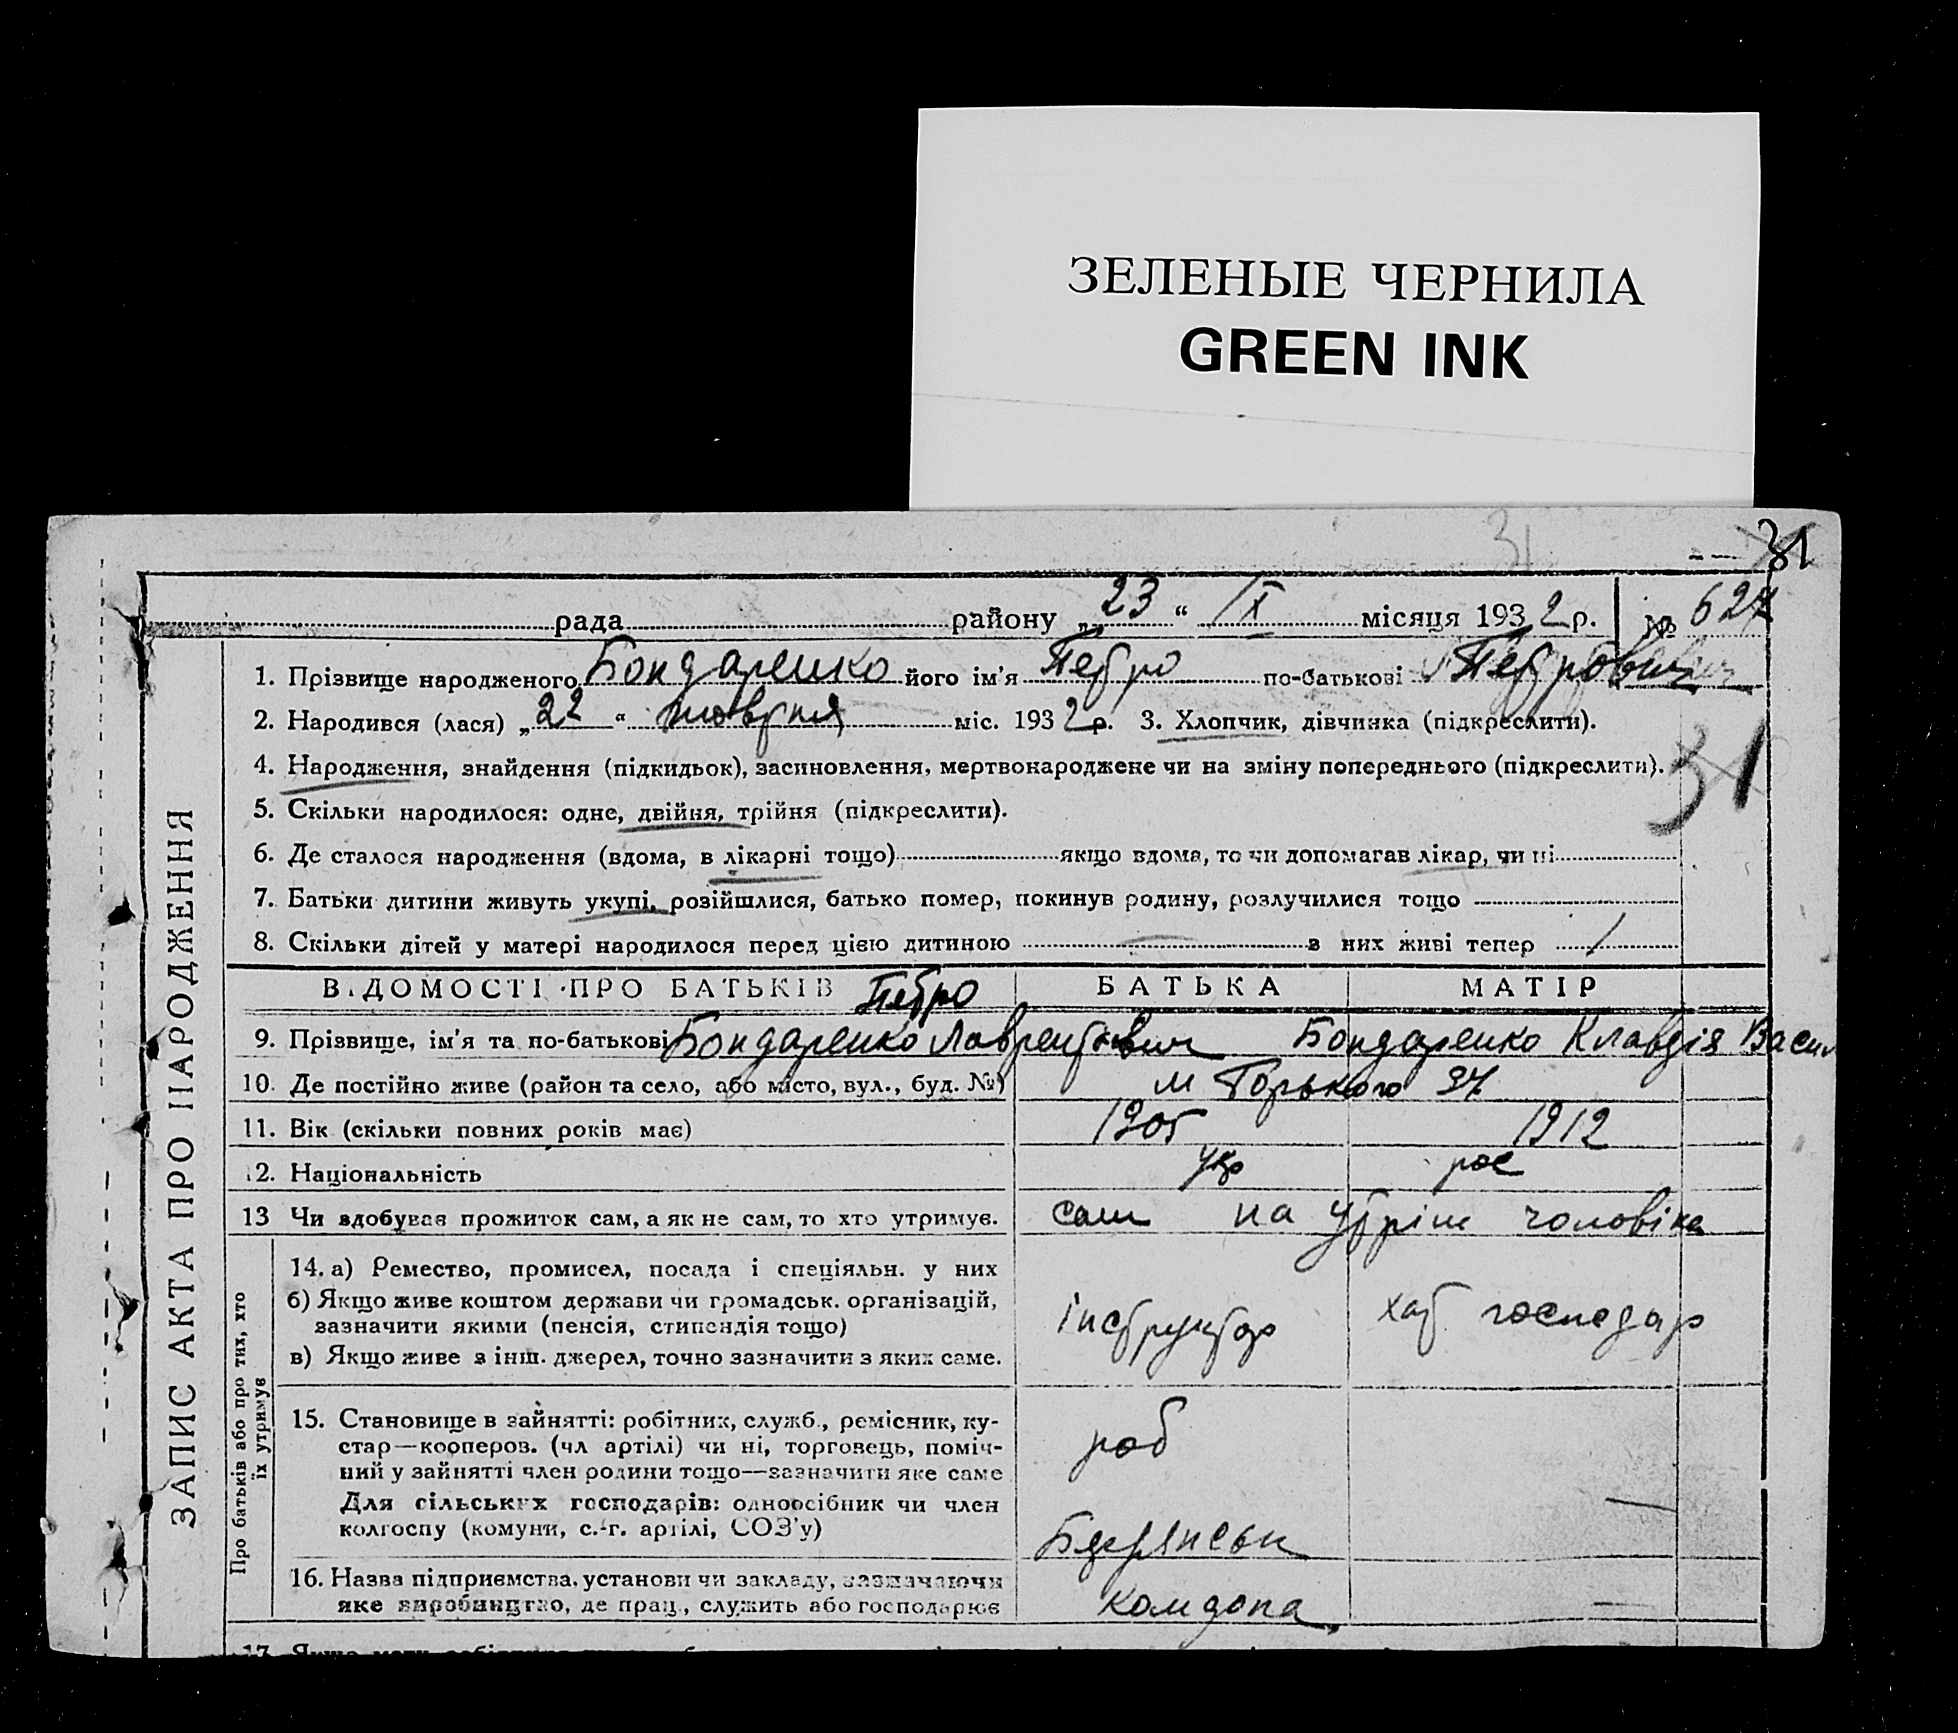 ЗЕЛЕНЫЕ ЧЕРНИЛА
GREEN INK
31
31
рада района „23“ IX місяця 1932 р. № 627
1. Прізвище народженого Бондаренко його ім'я Петро по-батькові Петрович
2. Народився (лася) „22“ жовтня міс. 1932 р. 3. Хлопчик, дівчинка (підкреслити).
31
4. Народження, знайдення (підкидьок), засиновлення, мертвонароджене чи на зміну попереднього (підкреслити).
5. Скільки народилося: одне, двійня, трійня (підкреслити).
6. Де сталося народження (вдома, в лікарні тощо) якщо вдома, то чи допомагав лікар, чи ні
7. Батьки дитини живуть укупі, розійшлися, батько помер, покинув родину, розлучилися тощо
8. Скільки дітей у матері народилося перед цією дитиною — з них живі тепер /
ЗАПИС АКТА ПРО НАРОДЖЕННЯ
ВІДОМОСТІ ПРО БАТЬКІВ БАТЬКА МАТІР
Петро
9. Прізвище, ім'я та по-батькові Бондаренко Лаврентьевич Бондаренко Клавдія Васил
10. Де постійно живе (район та село, або місто, вул., буд. №) м Горького 37
11. Вік (скільки повних років має) 1905 1912
12. Національність укр рос
13 Чи здобував прожиток сам, а як не сам, то хто утримує. сам на утрім чоловіка
Про батьків або про тих, хто їх утримує
14. а) Ремество, промисел, посада і спеціяльн. у них
б) Якщо живе коштом держави чи громадськ. організацій,
зазначити якими (пенсія, стипендія тощо)
в) Якщо живе з інш. джерел, точно зазначити з яких саме.
інструктор хат господар
15. Становище в зайнятті: робітник, служб., ремісник, ку-
стар—коопероз. (чл артілі) чи ні, торговець, поміч-
ний у зайнятті член родини тощо—зазначити яке саме
роб
Для сільських господарів: одноосібник чи член
колгоспу (комуни, с.-г. артілі, СОЗ'у)
16. Назва підприємства, установи чи закладу, зазначаючи
яке виробництво, де прац., служить або господарює